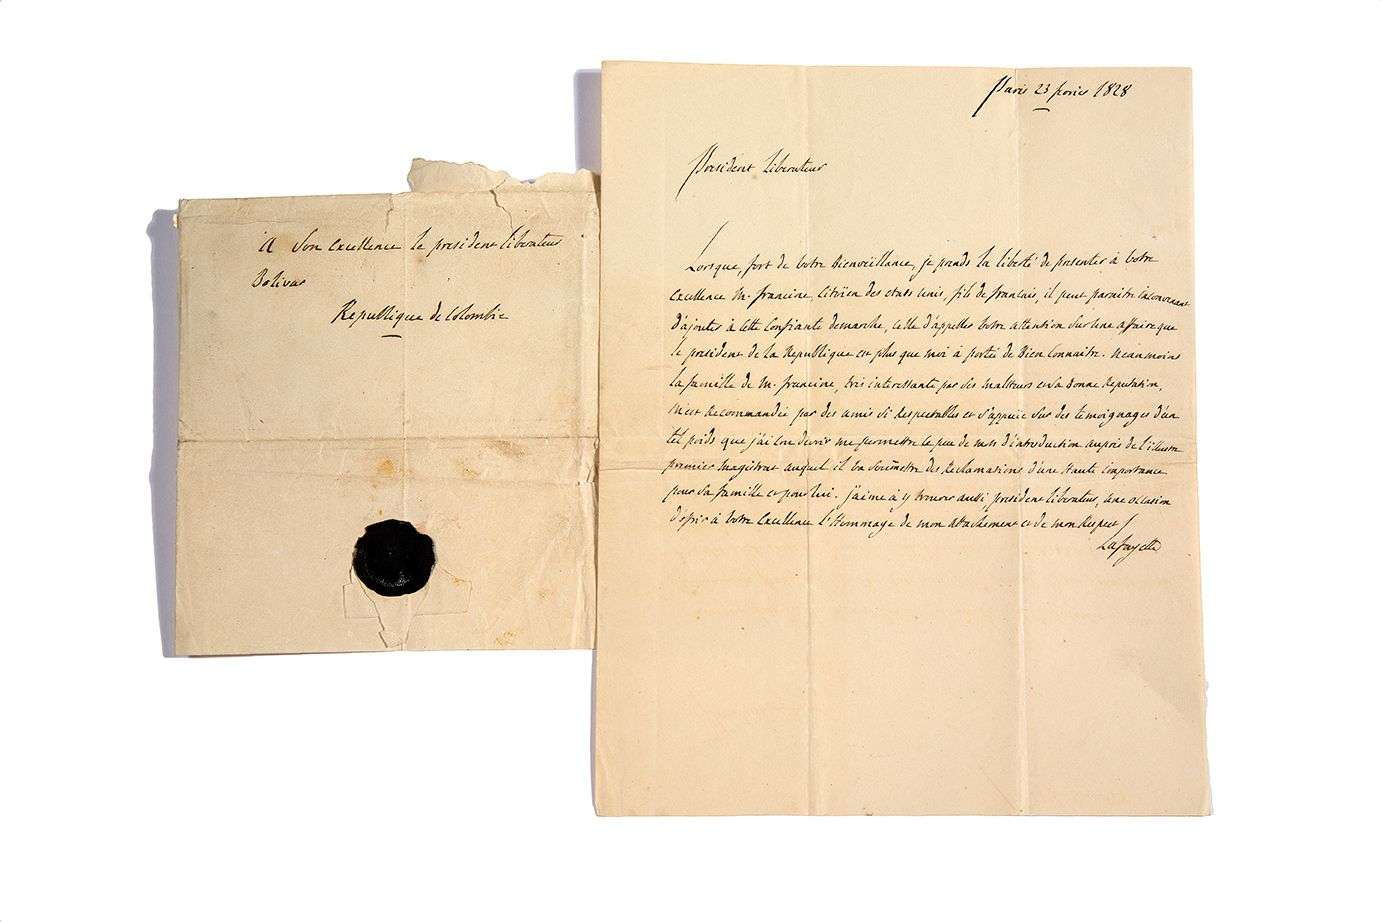 A Son excellence le president liberateur
Bolivar
Republique de Colombie
Paris 23 1828
President Liberateur
Lorsque, fort de votre Bienveillance, je prends la liberté de presenter à votre
excellence M. francine, Citoïen des etats unis, fils de francais, il peut paraitre inconvenant
d'ajouter à Cette Confiante demarche, celle d'appeller votre attention Sur une affaire que
le president de la Republique est plus que moi à portée de Bien Connaitre. Neanmoins
la famille de M. francine, très interessante par Ses malheurs et Sa Bonne Reputation,
M'est Recommandée par des amis Si Respectables et S'appuie Sur des temoignages d'un
tel poids que j'ai Cru devoir me permettre ce peu de mots d'introduction aupres de l'illustre
premier Magistrat auquel il va Soumettre des Reclamations d'une Haute importance
pour Sa famille et pour lui. j'aime à y trouver aussi president liberateur, une occasion
d'ofrir à Votre Excellence l'Hommage de mon attachement et de mon Respect
Lafayette